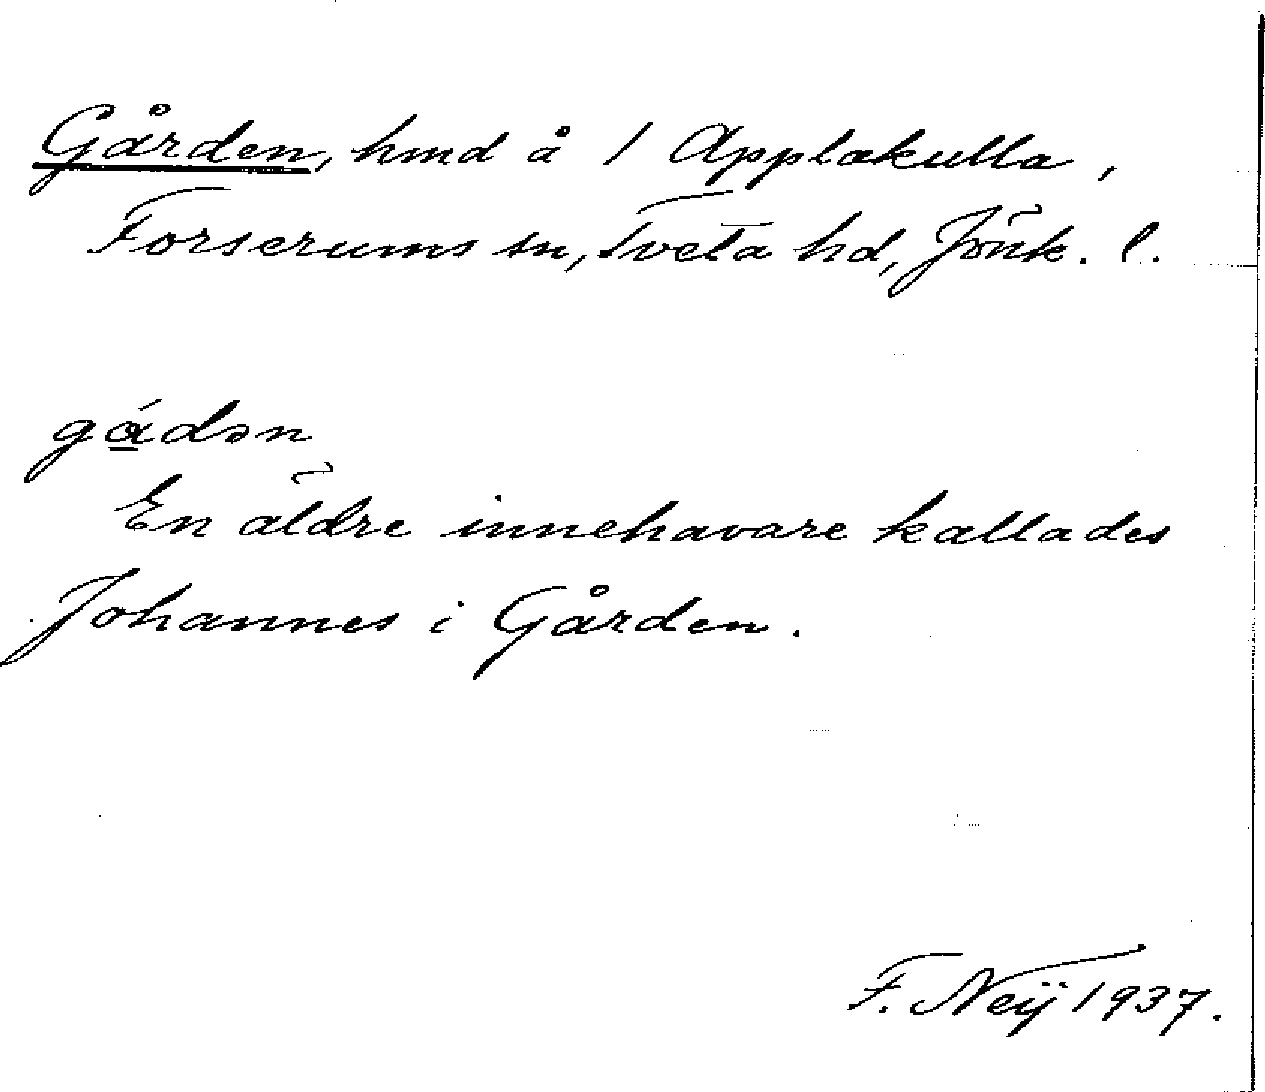 Gården, hmd å 1 Applakulla,
Forserums sn, Tveta hd, Jönk. l.
gádən
En äldre innehavare kallades
Johannes i Gården.
F. Neij 1937.